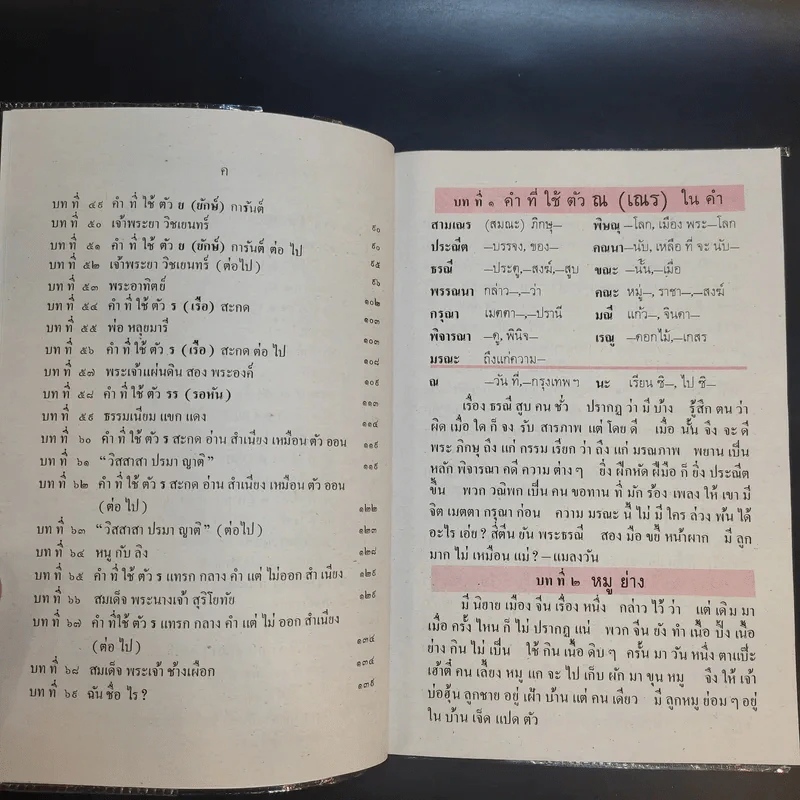 ค
บท ที่ ๔๙ คำ ที่ ใช้ ตัว ย (ยักษ์) การันต์
บท ที่ ๕๐ เจ้าพระยา วิชเยนทร์ ๙๐
บท ที่ ๕๑ คำ ที่ ใช้ ตัว ย (ยักษ์) การันต์ ต่อ ไป ๙๐
บท ที่ ๕๒ เจ้าพระยา วิชเยนทร์ (ต่อไป) ๙๕
บท ที่ ๕๓ พระอาทิตย์ ๙๖
บท ที่ ๕๔ คำ ที่ ใช้ ตัว ร (เรือ) สะกด ๑๐๒
บท ที่ ๕๕ พ่อ หลุยมารี ๑๐๓
บท ที่ ๕๖ คำ ที่ ใช้ ตัว ร (เรือ) สะกด ต่อ ไป ๑๐๘
บท ที่ ๕๗ พระเจ้าแผ่นดิน สอง พระองค์ ๑๐๙
บท ที่ ๕๘ คำ ที่ ใช้ ตัว รร (รอหัน) ๑๑๓
บท ที่ ๕๙ ธรรมเนียม แขก แดง ๑๑๔
บท ที่ ๖๐ คำ ที่ ใช้ ตัว ร สะกด อ่าน สำเนียง เหมือน ตัว ออน ๑๑๙
บท ที่ ๖๑ “วิสสาสา ปรมา ญาติ” ๑๑๙
บท ที่ ๖๒ คำ ที่ ใช้ ตัว ร สะกด อ่าน สำเนียง เหมือน ตัว ออน
(ต่อ ไป) ๑๒๒
บท ที่ ๖๓ “วิสสาสา ปรมา ญาติ” (ต่อไป) ๑๒๓
บท ที่ ๖๔ หนู กับ ลิง ๑๒๘
บท ที่ ๖๕ คำ ที่ ใช้ ตัว ร แทรก กลาง คำ แต่ ไม่ออก สำเนียง ๑๒๙
บท ที่ ๖๖ สมเด็จ พระนางเจ้า สุริโยทัย ๑๒๙
บท ที่ ๖๗ คำ ที่ใช้ ตัว ร แทรก กลาง คำ แต่ ไม่ ออก สำเนียง
(ต่อ ไป) ๑๓๔
บท ที่ ๖๘ สมเด็จ พระเจ้า ช้างเผือก ๑๓๔
บท ที่ ๖๙ ฉัน ชื่อ ไร ? ๑๓๙
บท ที่ ๑ คำ ที่ ใช้ ตัว ณ (เณร) ใน คำ
สามเณร (สมณะ) ภิกษุ– พิษณุ –โลก, เมือง พระ–โลก
ประณีต –บรรจง, ของ– คณนา –นับ, เหลือ ที่ จะ นับ–
ธรณี –ประตู,–สงฆ์,–สูบ ขณะ –นั้น,–เมื่อ
พรรณนา กล่าว–,–ว่า คณะ หมู่–, ราชา–,–สงฆ์
กรุณา เมตตา–,–ปรานี มณี แก้ว–, จินดา–
พิจารณา –ดู, พินิจ– เรณู –ดอกไม้,–เกสร
มรณะ ถึงแก่ความ–
ณ –วัน ที่,–กรุงเทพ ฯ นะ เรียน ซิ–, ไป ซิ–
เรื่อง ธรณี สูบ คน ชั่ว ปรากฏ ว่า มี บ้าง รู้สึก ตน ว่า
ผิด เมื่อ ใด ก็ จง รับ สารภาพ แต่ โดย ดี เมื่อ นั้น จึง จะ ดี
พระ ภิกษุ ถึง แก่ กรรม เรียก ว่า ถึง แก่ มรณภาพ พยาน เป็น
หลัก พิจารณา คดี ความ ต่าง ๆ ยิ่ง ฝึกหัด ฝีมือ ก็ ยิ่ง ประณีต
ขึ้น พวก วณิพก เป็น คน ขอทาน ที่ มัก ร้อง เพลง ให้ เขา มี
จิต เมตตา กรุณา ก่อน ความ มรณะ นี้ ไม่ มี ใคร ล่วง พ้น ได้
อะไร เอ่ย ? สี่ตีน ยัน พระธรณี สอง มือ ขยี้ หน้าผาก มี ลูก
มาก ไม่ เหมือน แม่ ? –แมลงวัน
บท ที่ ๒ หมู ย่าง
มี นิยาย เมือง จีน เรื่อง หนึ่ง กล่าว ไว้ ว่า แต่ เดิม มา
เมื่อ ครั้ง ไหน ก็ ไม่ ปรากฏ แน่ พวก จีน ยัง ทำ เนื้อ ปิ้ง เนื้อ
ย่าง กิน ไม่ เป็น ใช้ กิน เนื้อ ดิบ ๆ ครั้น มา วัน หนึ่ง ตาแป๊ะ
เฮ้าตี่ คน เลี้ยง หมู แก จะ ไป เก็บ ผัก มา ขุน หมู จึง ให้ เจ้า
บ่อฮุ้น ลูกชาย อยู่ เฝ้า บ้าน แต่ คน เดียว มี ลูกหมู ย่อม ๆ อยู่
ใน บ้าน เจ็ด แปด ตัว